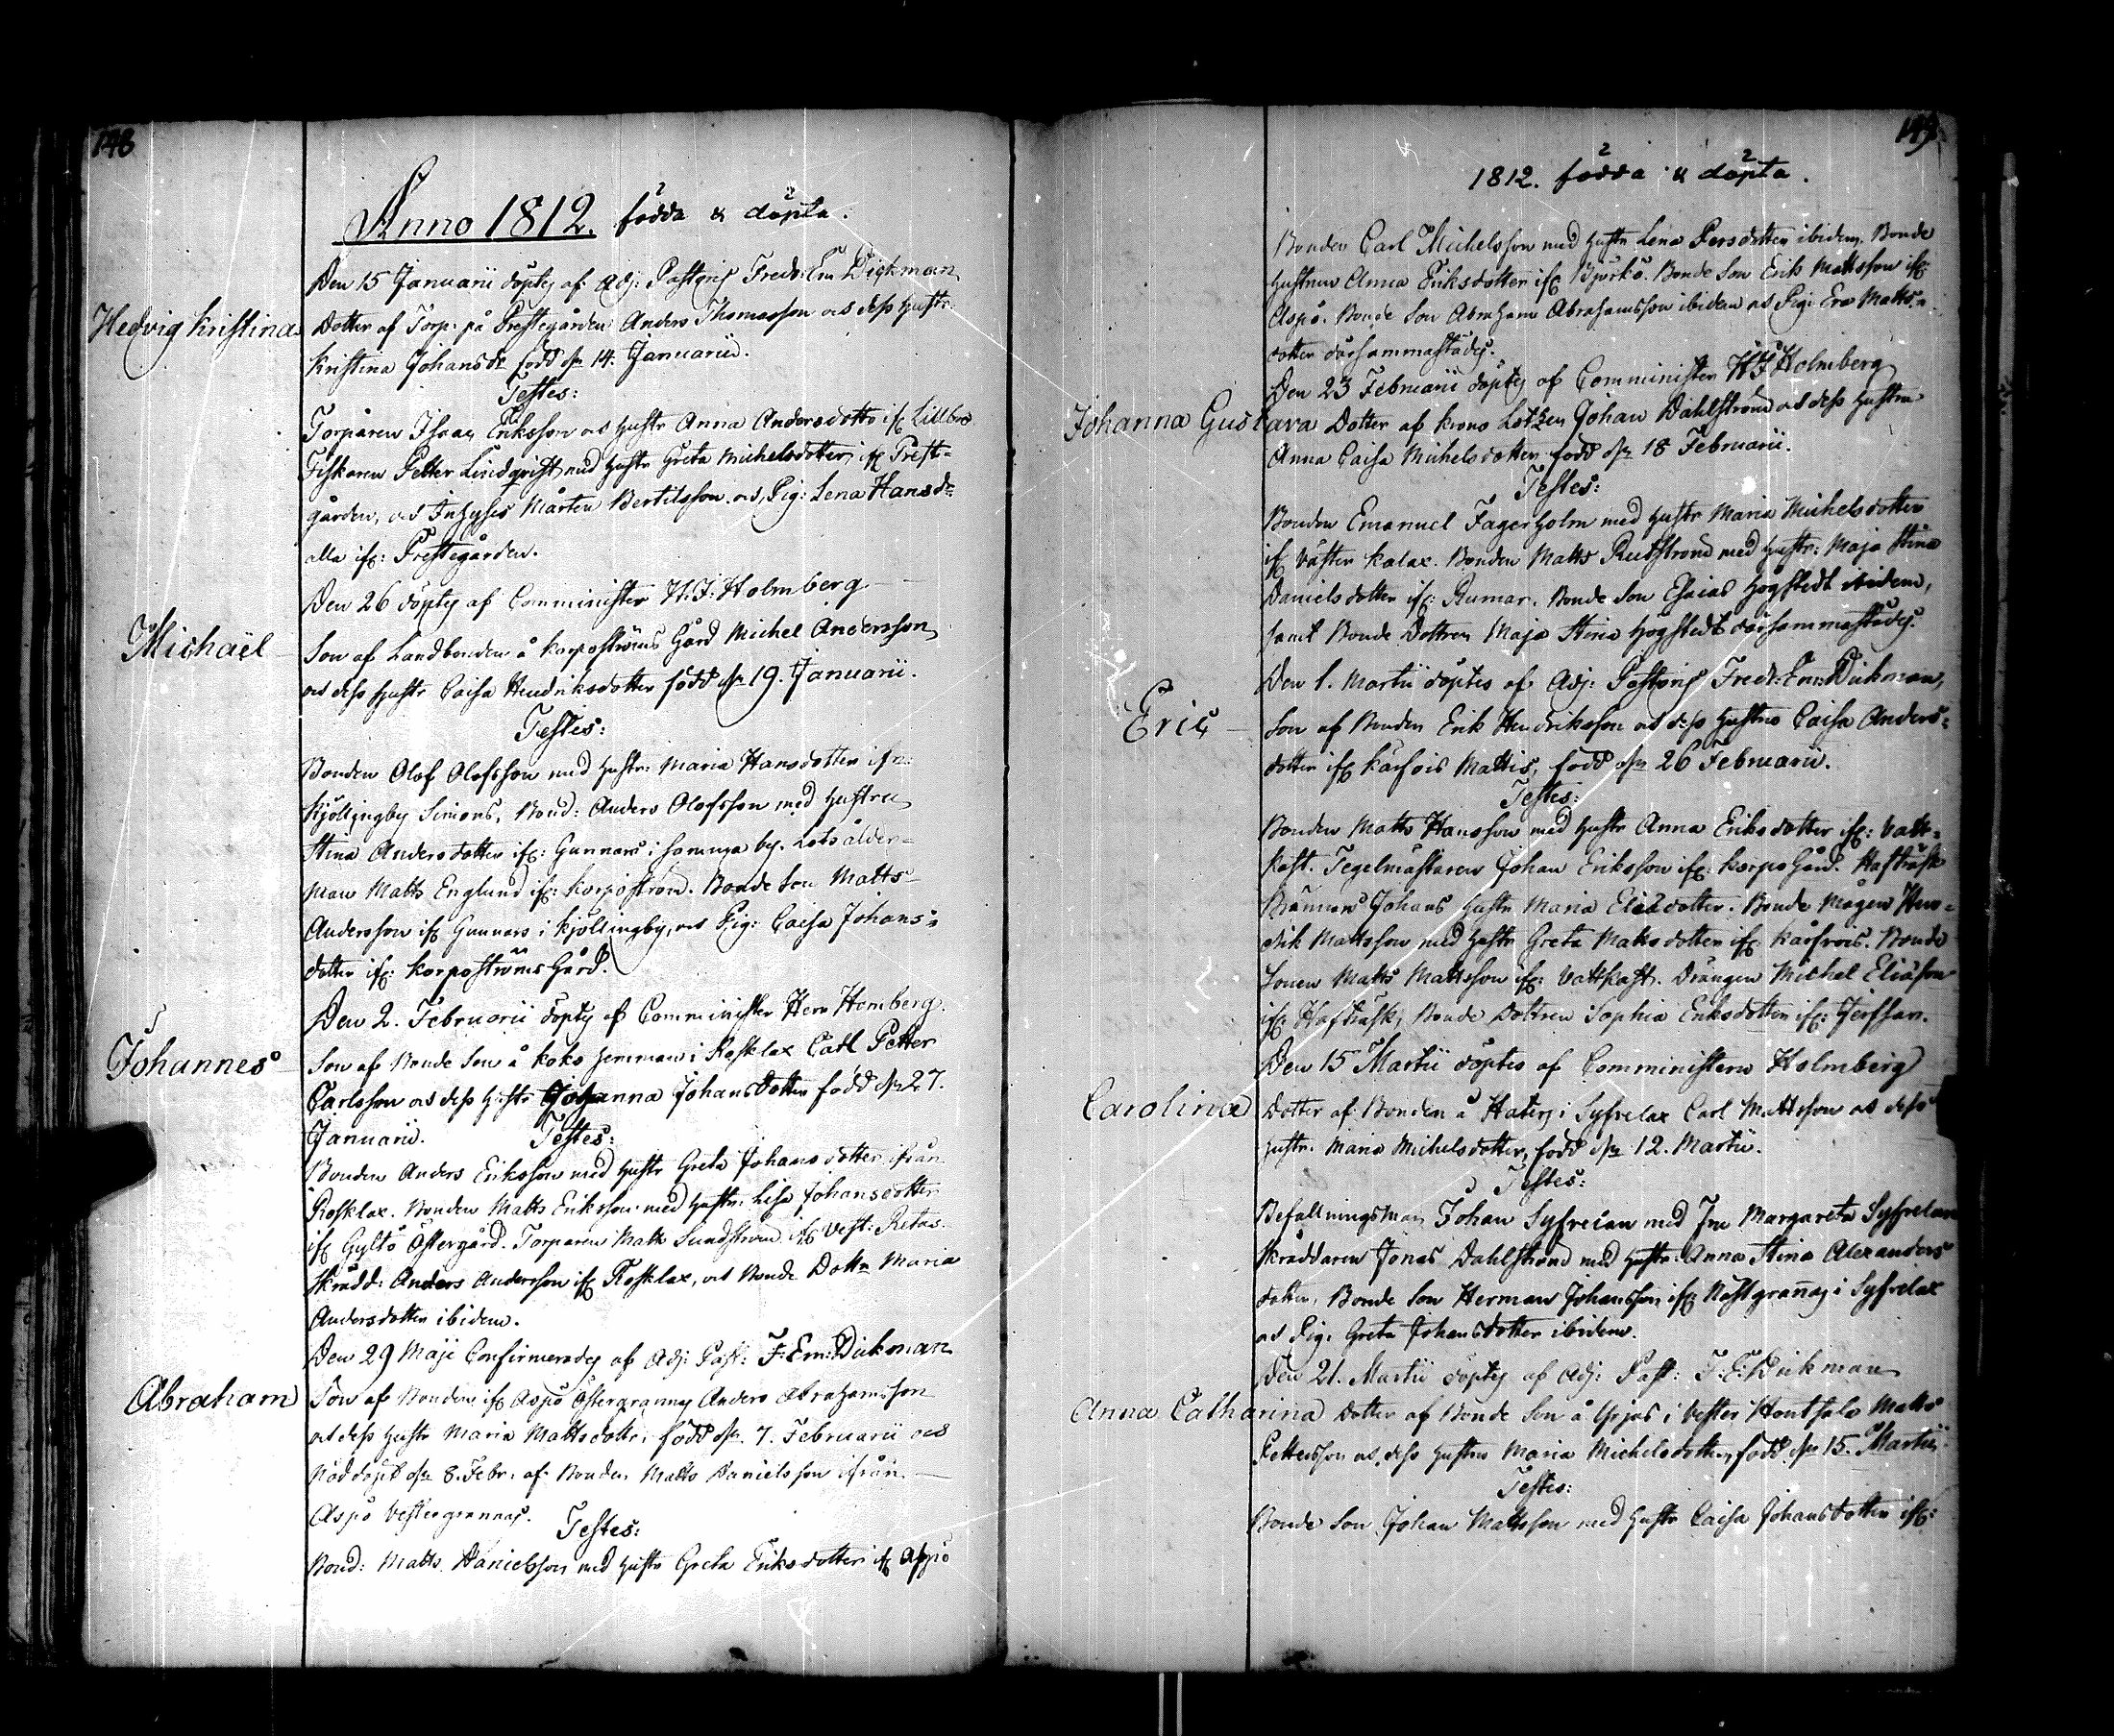 148
Anno 1812. födda & döpta.
Den 15 Januarii döptes af Adj: Pastoris Fredr: Em Dickman
Hedvig Kristina
Dotter af Torp: på Prestegården Anders Thomasson ock dess hustr:
Kristina Johansdr född dn 14. Januarii.
Testes:
Torparen Isaac Eriksson ock hustr Anna Andersdotter ifr
Fiskaren Petter Lindqvist med hustr Greta Michelsdotter, ifr Prest-
gården, ock Inhyses Mårten Bertilsson ock Pig: Lena Hansdr
alla ifr: Prestegården.
Den 26 döptes af Comminister H: J: Holmberg
Michaël
Son af Landbonden å Korpoströms Gård Michel Andersson
ock dess hustr Caisa Hendriksdotter född dn 19. Januarii.
Testes:
Bonden Olof Olofsson med hustr: Maria Hansdotter ifrn:
Kjöllingby Simons, Bond: Anders Olofsson med hustru
Stina Andersdotter ifr: Gunnars i samma by. Lots ålder-
man Matts Englund ifr: Korpoström. Bonde Son Matts
Andersson ifr Gunnars i Kjöllingby, ock Pig: Caisa Johans-
dotter ifr: Korpoströms Gård.
Den 2. Februarii döptes af Comminister Herr Homberg.
Johannes
Son af Bonde Son å Koks hemman i Rosklax Carl Petter
Carlsson ock dess hustr Johanna Johansdotter född dn 27.
Januarii. Testes:
Bonden Anders Eriksson med hustr Greta Johansdotter ifrån
Rosklax. Bonden Matts Eriksson med hustr: Lisa Johansdotter
ifr Gyltö Östergård. Torparen Matts Sundström ifr Vest: Retas.
Skrädd: Anders Andersson ifr Rosklax, ock Bonde Dottr Maria
Andersdotter ibidem.
Den 29 Maji Confirmerades af Adj: Past: F: Em: Dickman
Abraham
Son af Bonden ifr Aspö Östergrannas Anders Abrahamsson
ock dess hustr Maria Mattsdotter, född dn. 7. Februarii och
Nöddöpt dn 8. Febr. af Bonden Matts Danielsson ifrån
Aspö Vestergrannas. Testes:
Bond: Matts Danielsson med hustr Greta Eriksdotter ifr Aspö
149
1812. födda & döpta.
Bonden Carl Michelsson med hustr Lena Persdotter ibidem. Bonde
hustrun Anna Eriksdotter ifr Björkö. Bonde Son Erik Mattsson ifr
Aspö. Bonde Son Abraham Abrahamsson ibidem ock Pig: Eva Matts-
dotter därsammastädes.
Den 23 Februarii döptes af Comminister H J Holmberg
Johanna Gustava Dotter af krono Lotsen Johan Dahlström ock dess hustru
Anna Caisa Michelsdotter född dn 18 Februarii.
Testes:
Bonden Emanuel Fagerholm med hustr Maria Michelsdotter
ifr Väster Kalax. Bonden Matts Rutström med hustr: Maja Stina
Danielsdotter ifr: Rumar. Bonde Son Esaias Högstedt ibidem,
samt Bonde Dottren Maja Stina Högstedt därsammastädes.
Den 1. Martii döptes af Adj: Pastoris Fredr: Em: Dickman,
Eric
Son af Bonden Erik Hendriksson ock dess hustru Caisa Anders-
dotter ifr Kärfvis Mattis, född dn 26 Februarii.
Testes:
Bonden Matts Hansson med hustr Anna Eriksdotter ifr: Vatt-
kast. Tegelmästaren Johan Eriksson ifr: Korpo Gård. Hafträsk
Brännars Johans hustr Maria Eliædotter. Bonde Mågen Hen-
drik Mattsson med hustr Greta Mattsdotter ifr Kärfvis. Bonde
Sonen Matts Mattsson ifr: Vattkast. Drängen Michel Eliæson
ifr Hafträsk, Bonde Dottren Sophia Eriksdotter ifr:
Den 15 Martii döptes af Comministern Holmberg
Carolina
Dotter af Bonden å i Syfvelax Carl Mattsson ock dess
hustr. Maria Michelsdotter, född dn 12. Martii.
Testes:
Befallningsman Johan med Fru Margareta
Skräddaren Jonas Dahlström med hustr: Anna Stina Alexanders
dotter, Bonde Son Herman Johansson ifr i Syfvelax
ock Pig: Greta Johansdotter ibidem.
Den 21. Martii döptes af Adj: Past: F: E: Dickman
Anna Catharina Dotter af Bonde Son å Yrjas i Vester Hontsala Matts
Pettersson ock dess hustru Maria Michelsdotter, född dn 15. Martii.
Testes:
Bonde Son Johan Mattsson med hustr Caisa Johansdotter ifr: